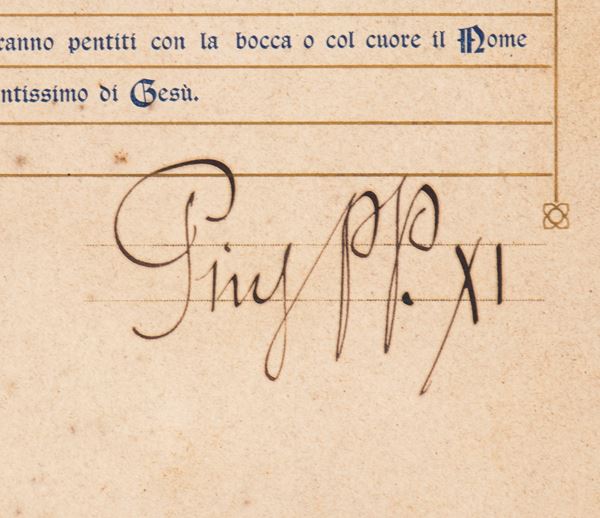 ranno pentiti con la bocca o col cuore il Nome
ntissimo di Gesù.
Pius PP. XI